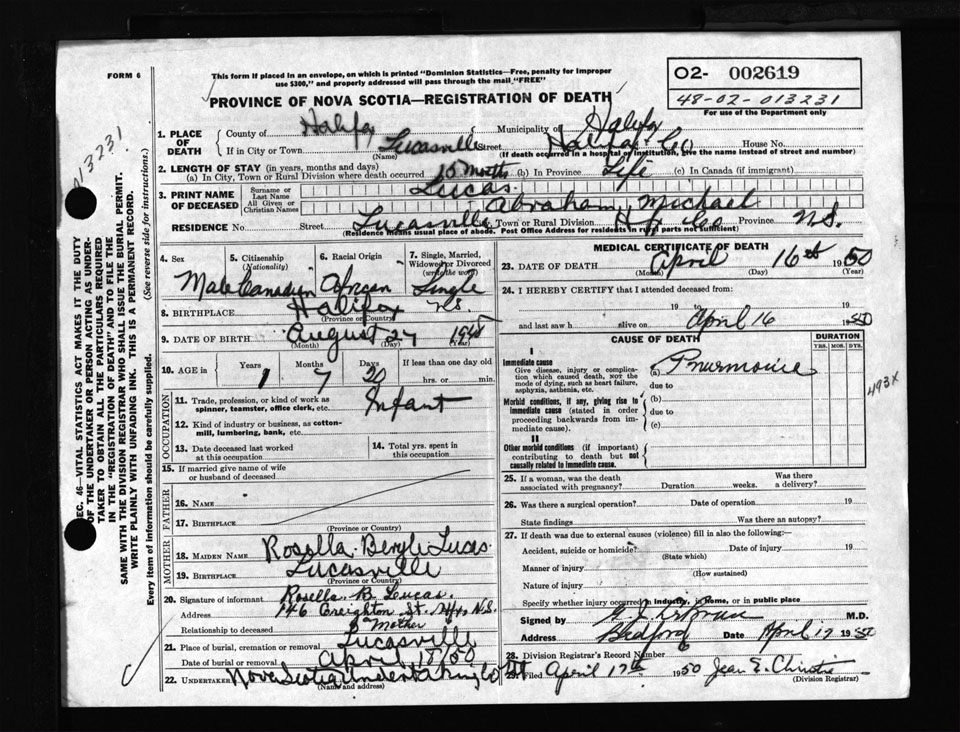 FORM 6
This form if placed in an envelope, on which is printed "Dominion Statistics—Free, penalty for improper
use $300," and properly addressed will pass through the mail "FREE"
O2- 002619
48-02-013231
For use of the Department
PROVINCE OF NOVA SCOTIA—REGISTRATION OF DEATH
013231
1. PLACE OF DEATH
County of Halifax Municipality of Halifax
If in City or Town Lucasville Street Halifax Co House No.
(Name) (If death occurred in a hospital or institution, give the name instead of street and number)
2. LENGTH OF STAY (in years, months and days)
(a) In City, Town or Rural Division where death occurred 10 months (b) In Province Life (c) In Canada (if immigrant)
3. PRINT NAME OF DECEASED
Surname or Last Name Lucas.
All Given or Christian Names Abraham, Michael
RESIDENCE No. Street Lucasville Town or Rural Division Hfx Co Province N.S.
(Residence means usual place of abode. Post Office Address for residents in rural parts not sufficient)
4. Sex
Male
5. Citizenship
(Nationality)
Canadian
6. Racial Origin
African
7. Single, Married, Widowed or Divorced
(write the word)
Single
8. BIRTHPLACE Halifax N.S.
(Province or Country)
9. DATE OF BIRTH August 27 1948
(Month) (Day) (Year)
10. AGE in
Years Months Days If less than one day old
1 7 20 hrs. or min.
OCCUPATION
11. Trade, profession, or kind of work as
spinner, teamster, office clerk, etc. Infant
12. Kind of industry or business, as cotton-
mill, lumbering, bank, etc.
13. Date deceased last worked
at this occupation
14. Total yrs. spent in
this occupation
15. If married give name of wife
or husband of deceased
FATHER
16. NAME
17. BIRTHPLACE
(Province or Country)
MOTHER
18. MAIDEN NAME Rosella Beryle Lucas.
19. BIRTHPLACE Lucasville
(Province or Country)
20. Signature of informant Rosella B. Lucas.
Address 146 Creighton St. Hfx N.S.
Relationship to deceased Mother
21. Place of burial, cremation or removal Lucasville
Date of burial or removal April 18/50
22. UNDERTAKER Nova Scotia Undertaking Co Ltd
(Name and address)
MEDICAL CERTIFICATE OF DEATH
23. DATE OF DEATH April 16th 1950
(Month) (Day) (Year)
24. I HEREBY CERTIFY that I attended deceased from:
19 to 19
and last saw h alive on April 16 1950
CAUSE OF DEATH
DURATION
YRS. MOS. DYS.
I
Immediate cause
Give disease, injury or complica-
tion which caused death, NOT the
mode of dying, such as heart failure,
asphyxia, asthenia, etc.
(a) Pneumonia
due to
493X
Morbid conditions, if any, giving rise to
immediate cause (stated in order
proceeding backwards from im-
mediate cause).
(b)
due to
(c)
II
Other morbid conditions (if important)
contributing to death but not
causally related to immediate cause.
25. If a woman, was the death
associated with pregnancy? Duration weeks. Was there
a delivery?
26. Was there a surgical operation? Date of operation 19
State findings Was there an autopsy?
27. If death was due to external causes (violence) fill in also the following:—
Accident, suicide or homicide? Date of injury 19
(State which)
Manner of injury
(How sustained)
Nature of injury
Specify whether injury occurred in industry, in home, or in public place
Signed by M.D.
Address Bedford Date April 17 1950
28. Division Registrar's Record Number
29. Filed April 17th 1950 Jean E. Christie
(Division Registrar)
DEC. 46—VITAL STATISTICS ACT MAKES IT THE DUTY
OF THE UNDERTAKER OR PERSON ACTING AS UNDER-
TAKER TO OBTAIN ALL THE PARTICULARS REQUIRED
IN THE "REGISTRATION OF DEATH" AND TO FILE THE
SAME WITH THE DIVISION REGISTRAR WHO SHALL ISSUE THE BURIAL PERMIT.
WRITE PLAINLY WITH UNFADING INK. THIS IS A PERMANENT RECORD.
Every item of information should be carefully supplied. (See reverse side for instructions.)